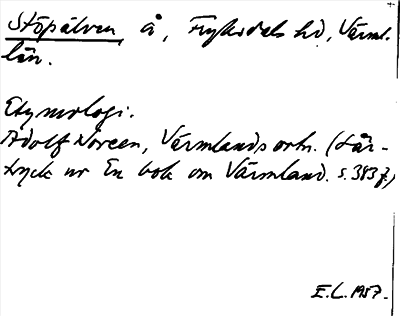 Stöpälven, å, Fryksdals hd, Värml.
län.
Etymologi.
Adolf Noreen, Värmlands ortn. (Sär-
tryck ur En bok om Värmland. s. 383 f.)
E.L. 1957.